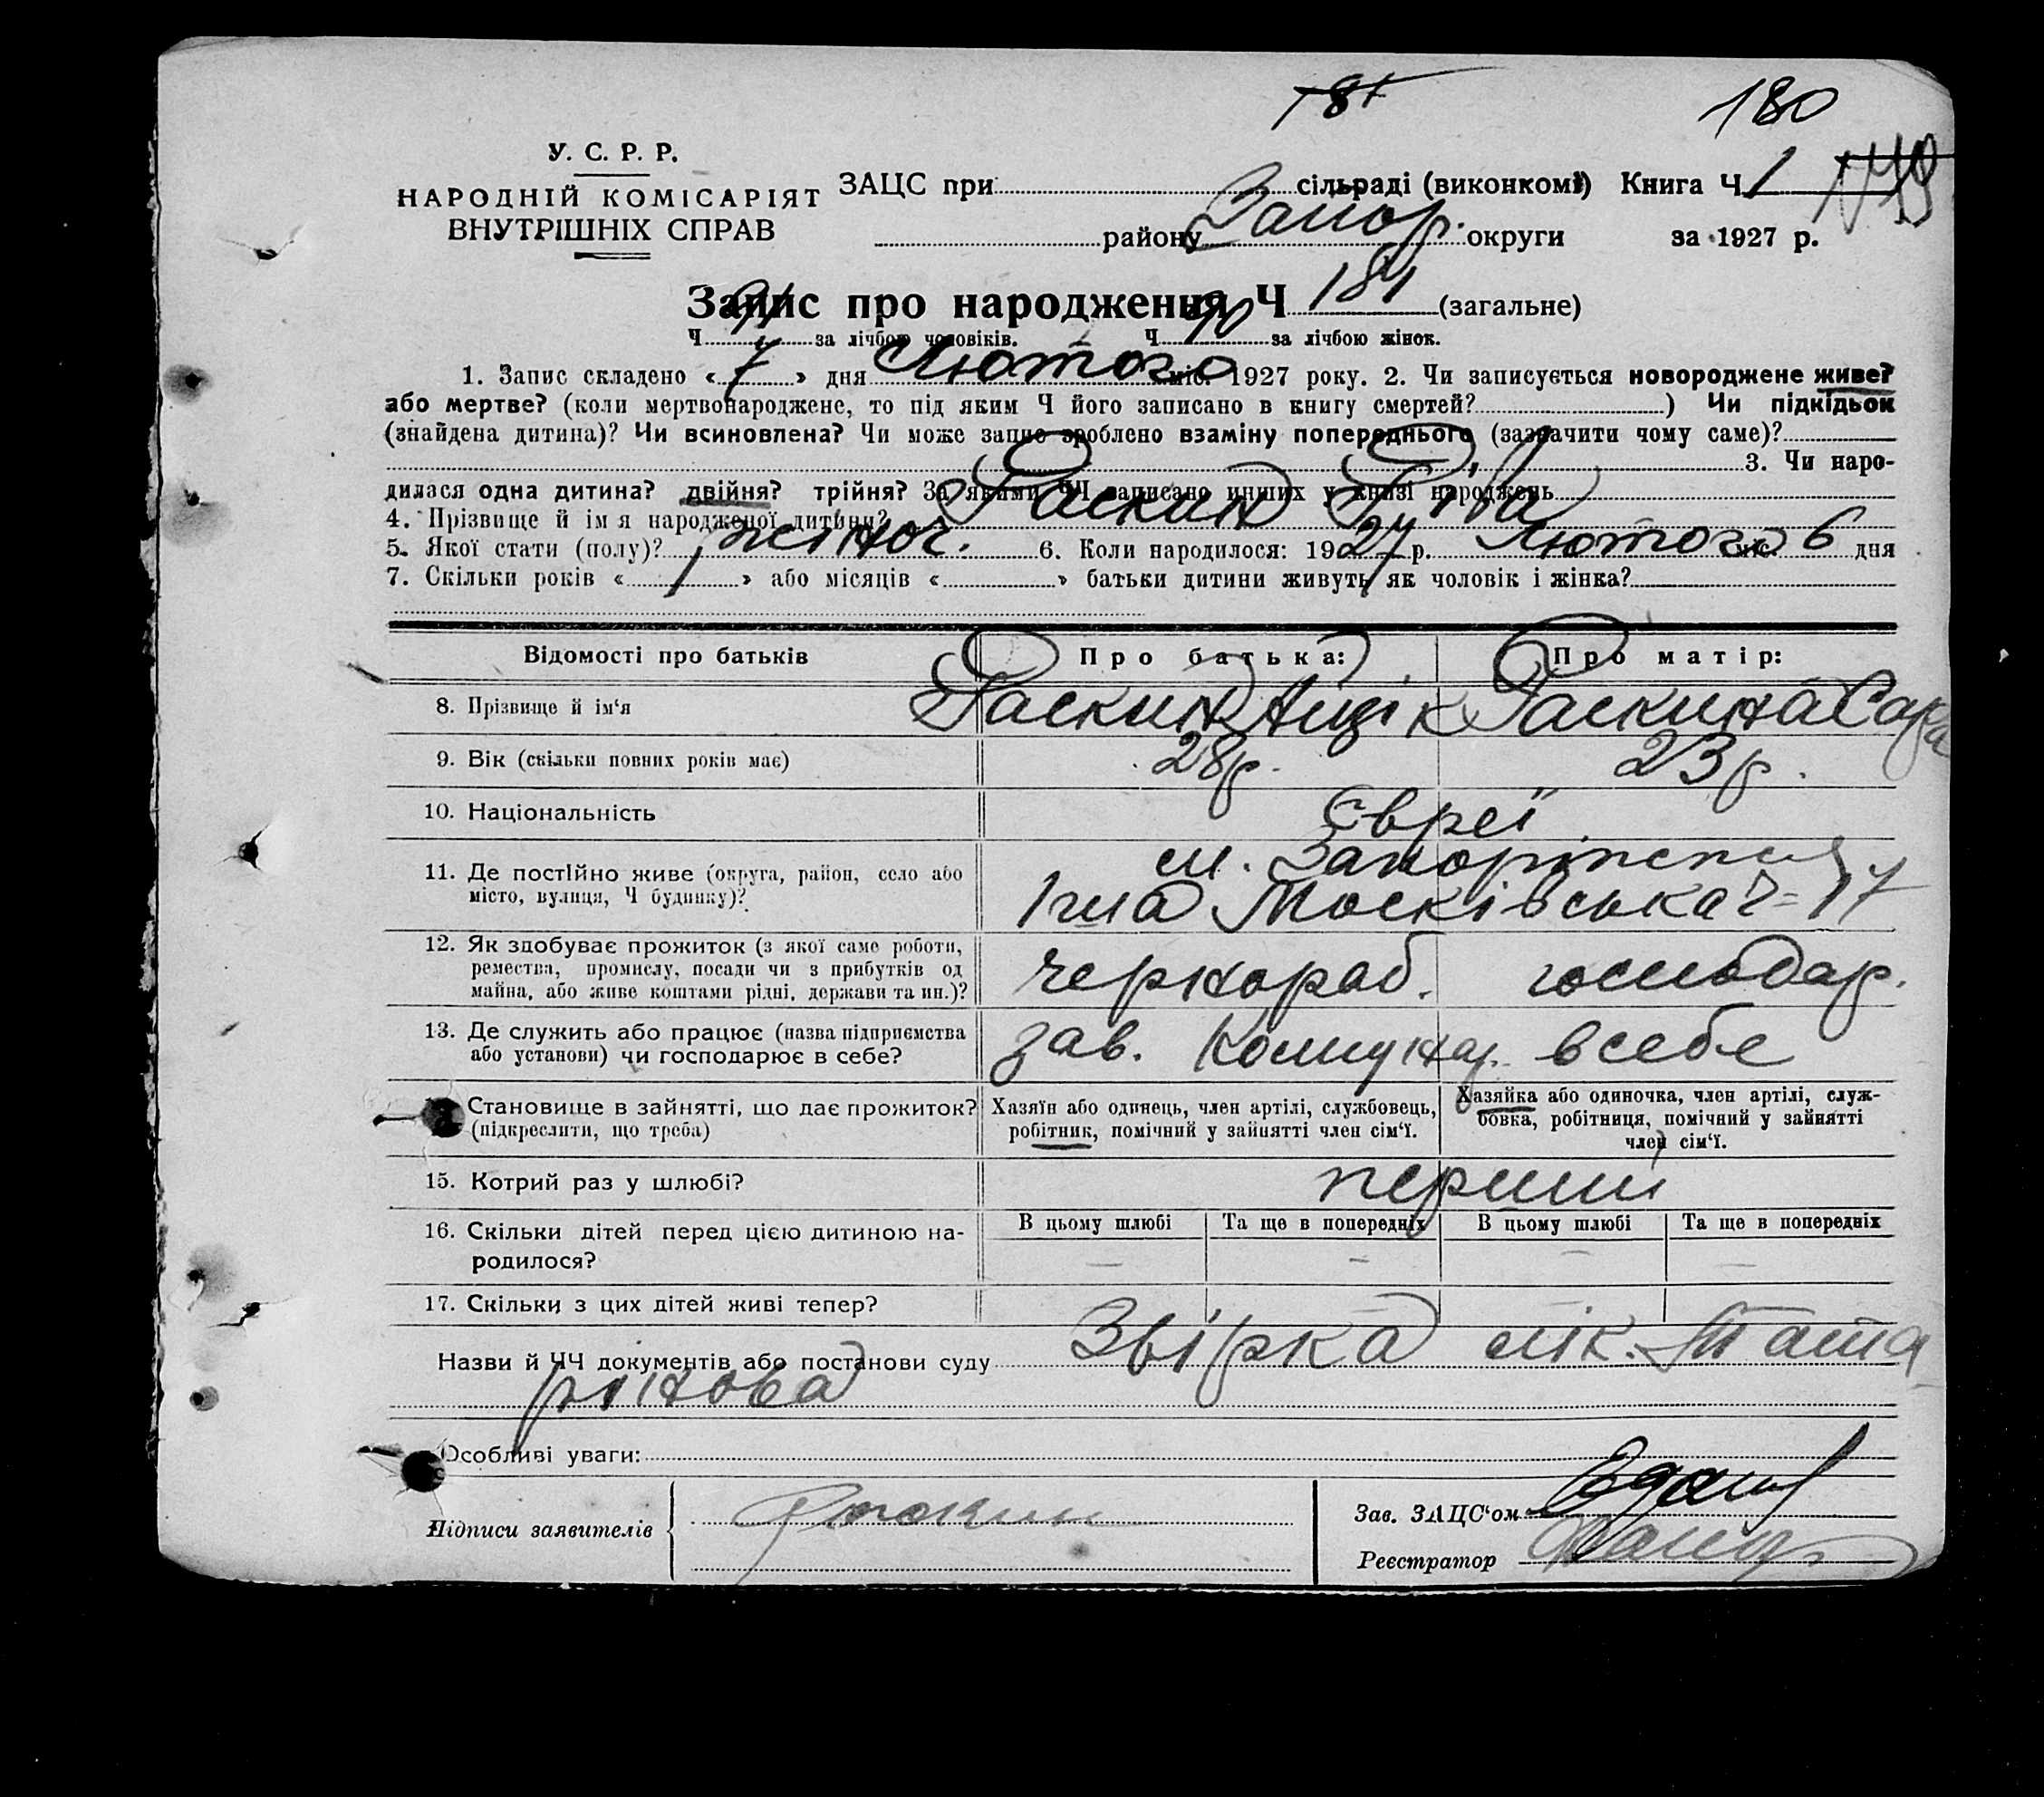 181
180
У. С. Р. Р.
НАРОДНІЙ КОМІСАРІЯТ
ВНУТРІШНІХ СПРАВ
ЗАЦС при сільраді (виконкомі) Книга Ч 1
району Запор. округи за 1927 р.
Запис про народження Ч 181 (загальне)
Ч 91 за лічбою чоловіків. Ч 90 за лічбою жінок.
1. Запис складено «7» дня Лютого міс. 1927 року. 2. Чи записується новороджене живе?
або мертве? (коли мертвонароджене, то під яким Ч його записано в книгу смертей? ) Чи підкідьок
(знайдена дитина)? Чи всиновлена? Чи може запис зроблено взаміну попереднього (зазначити чому саме)?
3. Чи наро-
дилася одна дитина? двійня? трійня? За якими ЧЧ записано инших у книзі народжень
4. Прізвище й ім я народженої дитини? Раскин Ріва
5. Якої стати (полу)? жіноч. 6. Коли народилося: 1927 р. Лютого міс. 6 дня
7. Скільки років «1» або місяців « » батьки дитини живуть як чоловік і жінка?
Відомості про батьків Про батька: Про матір:
8. Прізвище й ім‘я Раскин Аизік Раскина Сара
9. Вік (скільки повних років має) 28 р. 23 р.
10. Національність Євреї
11. Де постійно живе (округа, район, село або
місто, вулиця, Ч будинку)?
м. Запоріжжя
Московська ч = 17
12. Як здобуває прожиток (з якої саме роботи,
ремества, промислу, посади чи з прибутків од
майна, або живе коштами рідні, держави та ин.)?
чернораб. господар.
13. Де служить або працює (назва підприємства
або установи) чи господарює в себе?
зав. Комунар. в себе
Становище в зайнятті, що дає прожиток?
(підкреслити, що треба)
Хазяїн або одинець, член артілі, службовець,
робітник, помічний у зайнятті член сім‘ї.
Хазяйка або одиночка, член артілі, служ-
бовка, робітниця, помічний у зайнятті
член сім‘ї.
15. Котрий раз у шлюбі? перший
16. Скільки дітей перед цією дитиною на-
родилося?
В цьому шлюбі Та ще в попередніх В цьому шлюбі Та ще в попередніх
— — — —
17. Скільки з цих дітей живі тепер?
Назви й ЧЧ документів або постанови суду Звірка лік. Тата
рінова
Особливі уваги:
Підписи заявителів Раскин
Зав. ЗАЦС‘ом
Реєстратор